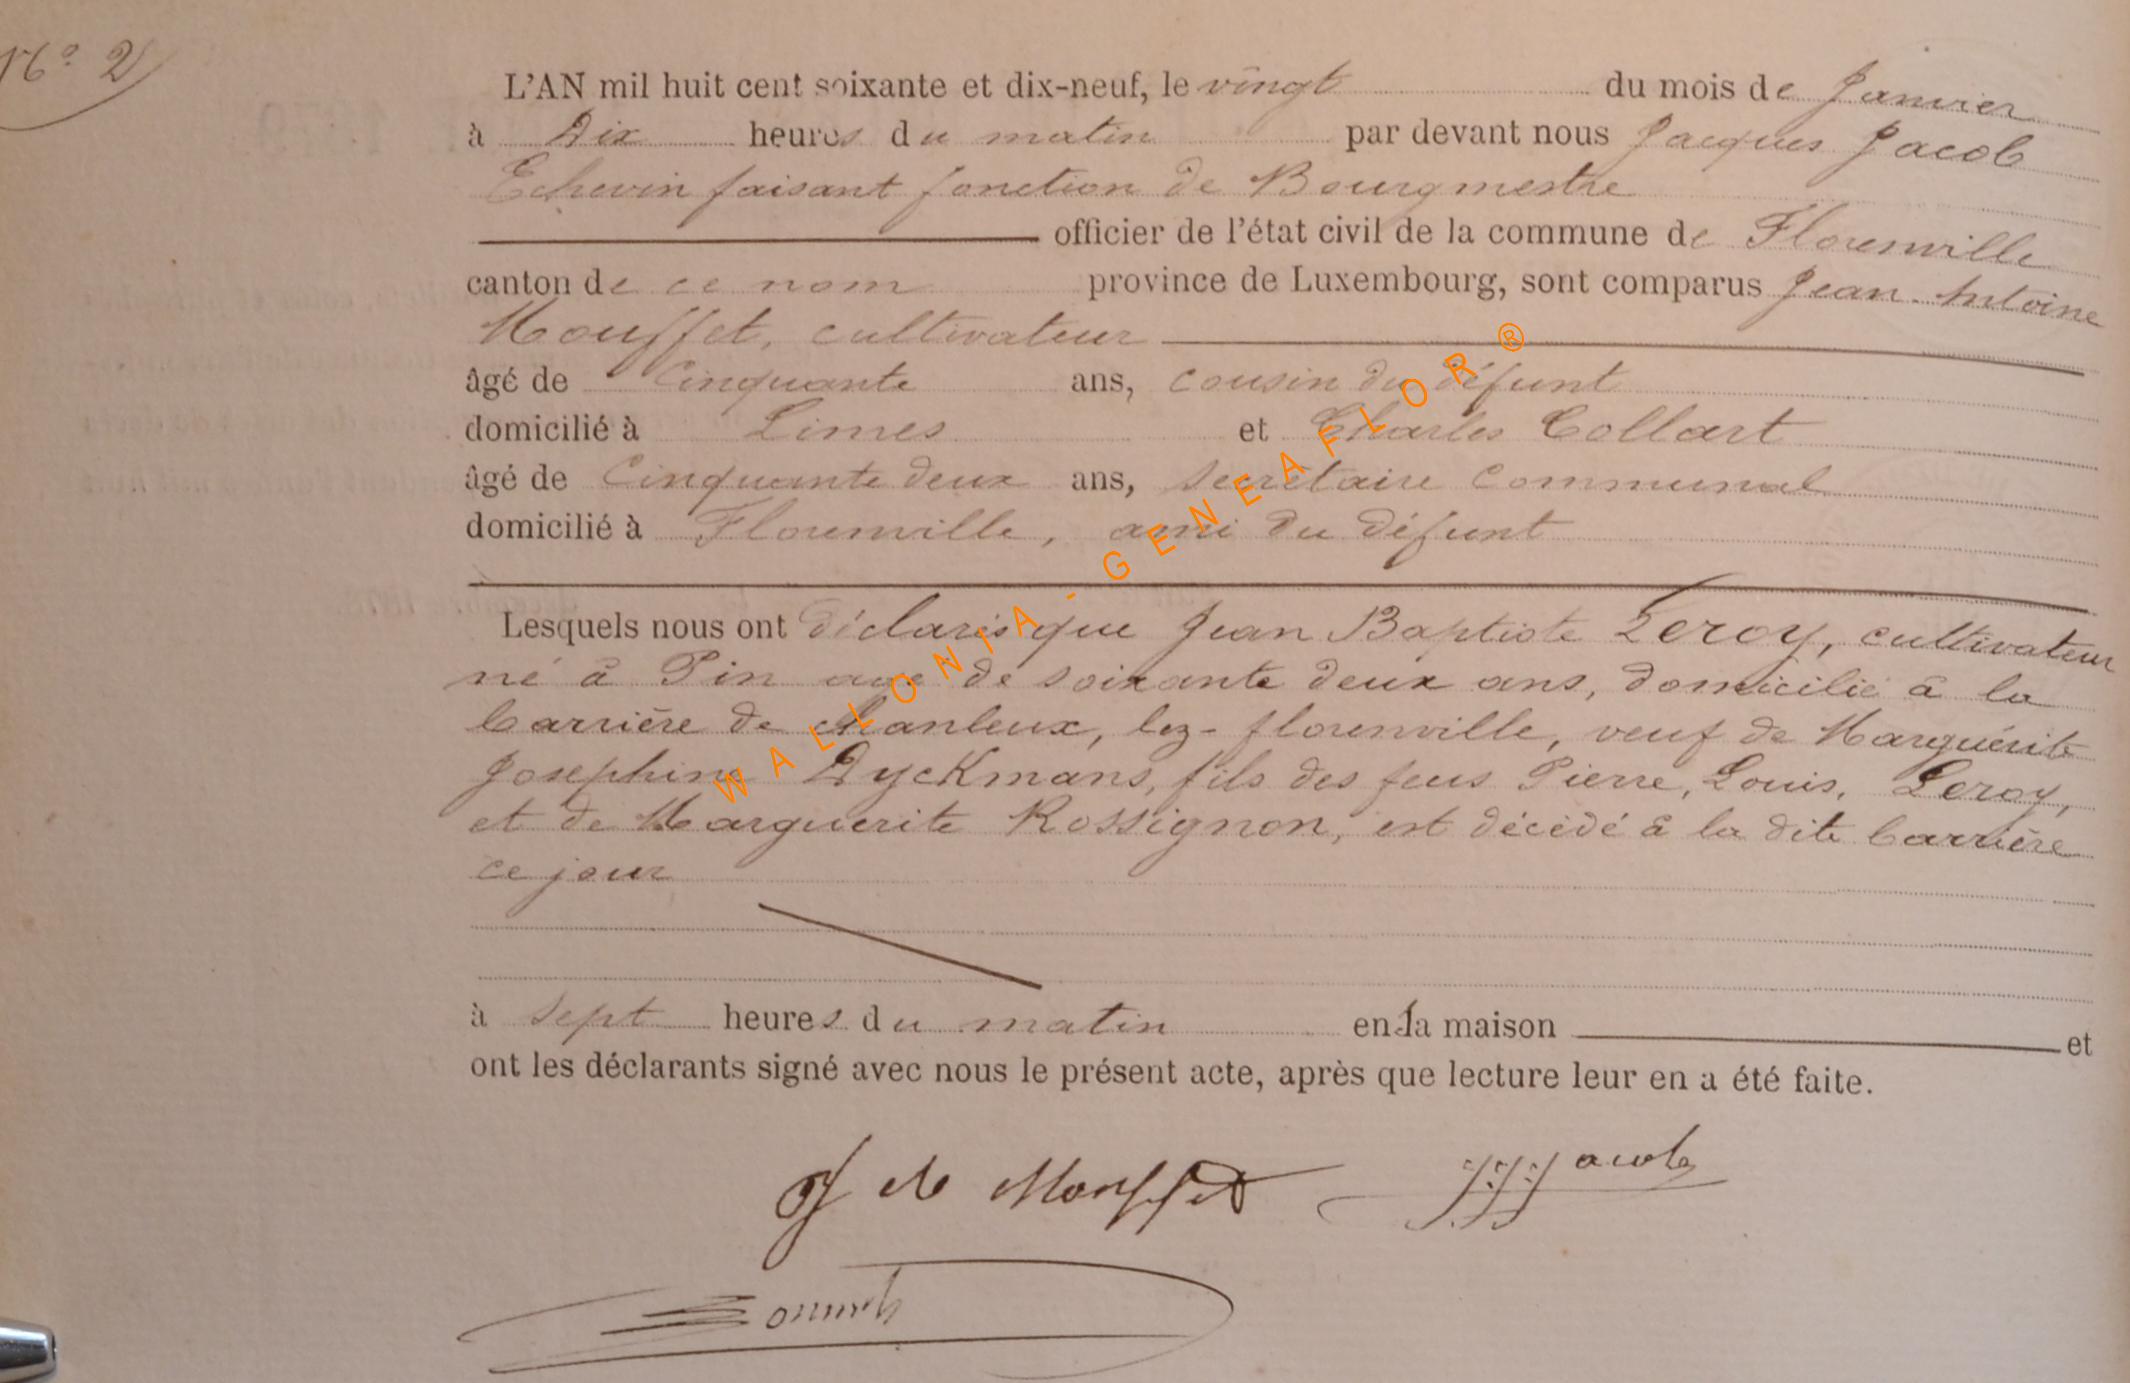 N° 2
L'AN mil huit cent soixante et dix-neuf, le vingt du mois de Janvier
à Dix heures du matin par devant nous Jacques Jacob
Echevin faisant fonction de Bourgmestre
officier de l'état civil de la commune de Florenville
canton de ce nom province de Luxembourg, sont comparus Jean-Antoine
Mouffet, cultivateur
âgé de Cinquante ans, cousin du défunt
domicilié à Limes et Charles Collart
âgé de Cinquante deux ans, secrétaire Communal
domicilié à Florenville, ami du défunt
Lesquels nous ont déclarés que Jean Baptiste Leroy, cultivateur
né à Pin age de soixante deux ans, domicilié à la
barrière de chanleux, lez-florenville, veuf de Marguérite
Josephine Dyckmans, fils des feus Pierre, Louis, Leroy,
et de Marguerite Rossignon, est décédé à la dite barrière
ce jour
à sept heures du matin en la maison et
ont les déclarants signé avec nous le présent acte, après que lecture leur en a été faite.
Mouffet J.J. Jacob
WALLONIA-GENEAFLOR®